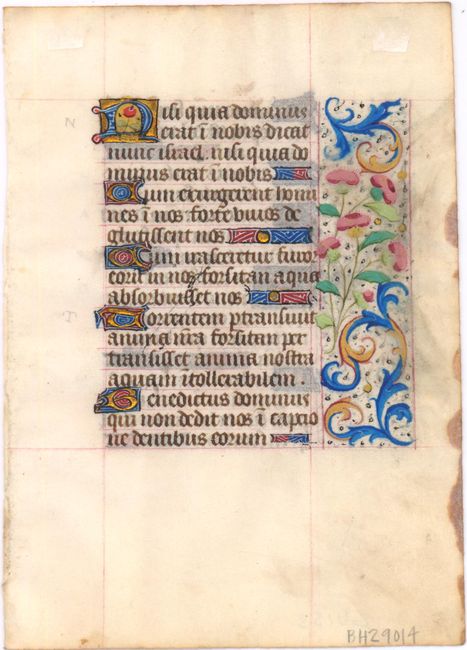 Nisi quia dominus
erat ī nobis dicat
nunc israel. nisi quia do
minus erat ī nobis
Cum exurgerent homi
nes ī nos: forte vivos de
glutissent nos
Cum irasceretur furor
eorū in nos: forsitan aqua
absorbuisset nos
Torrentem ptransivit
anima nr̄a: forsitan per
transisset anima nostra
aquam ītollerabilem.
Benedictus dominus
qui non dedit nos ī captio
ne dentibus eorum
BH29014